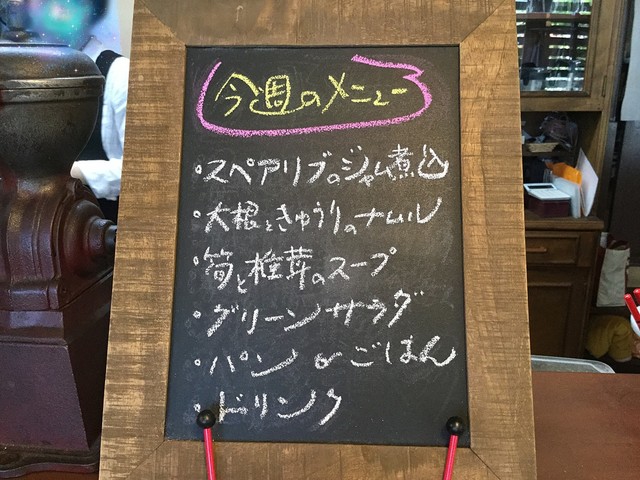 今週のメニュー
・スペアリブのジャム煮込
・大根ときゅうりのナムル
・筍と椎茸のスープ
・グリーンサラダ
・パン or ごはん
・ドリンク